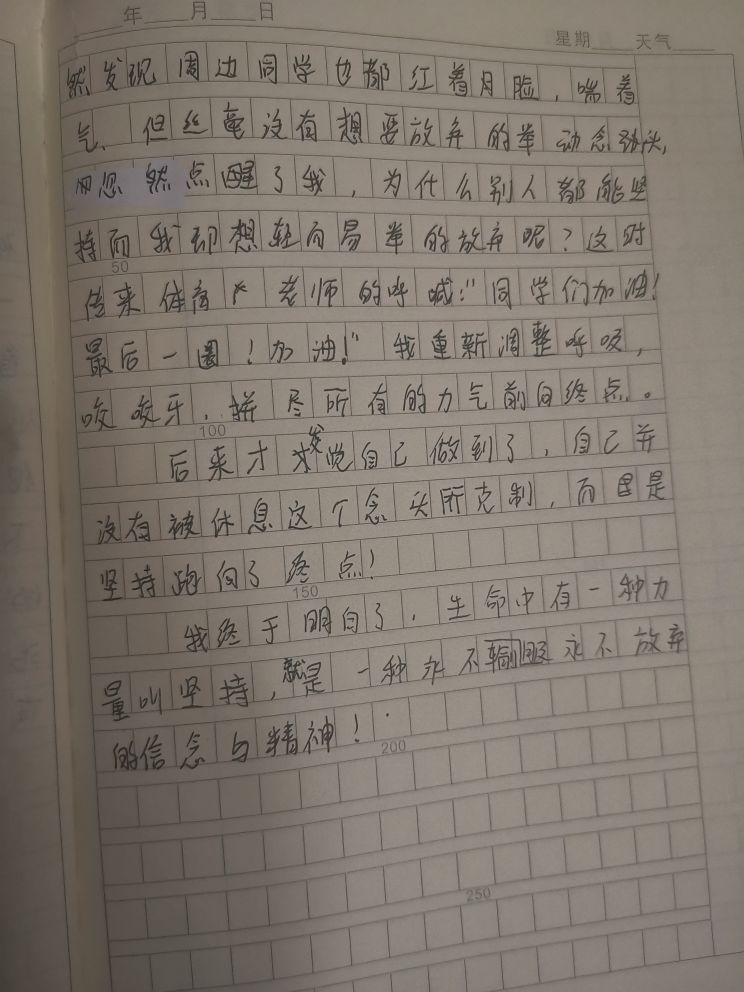 年 月 日
星期 天气
然发现周边同学也都红着月脸，喘着
气、但丝毫没有想要放弃的举动念头，
忽然点醒了我，为什么别人都能坚
持而我却想轻而易举的放弃呢？这时
50
传来体育 老师的呼喊："同学们加油！
最后一圈！加油！"我重新调整呼吸，
咬咬牙，拼尽所有的力气前向终点。
100
后来才发觉自己做到了，自己并
没有被休息这个念头所克制，而且是
坚持跑向了终点！
150
我终于明白了，生命中有一种力
量叫坚持，就是一种永不输服永不放弃
的信念与精神！
200
250